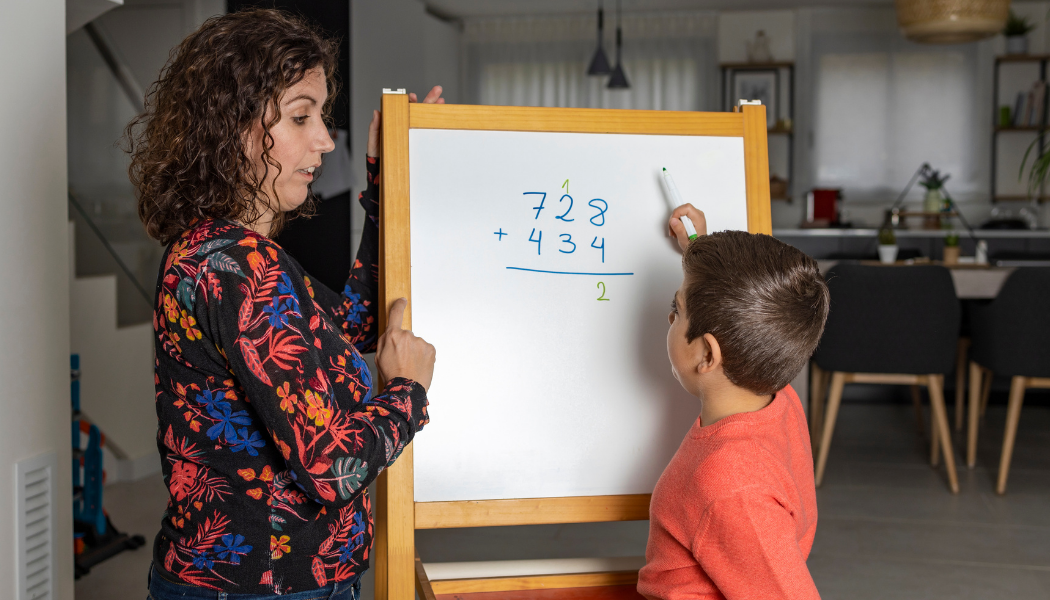 1
728
+ 434
2